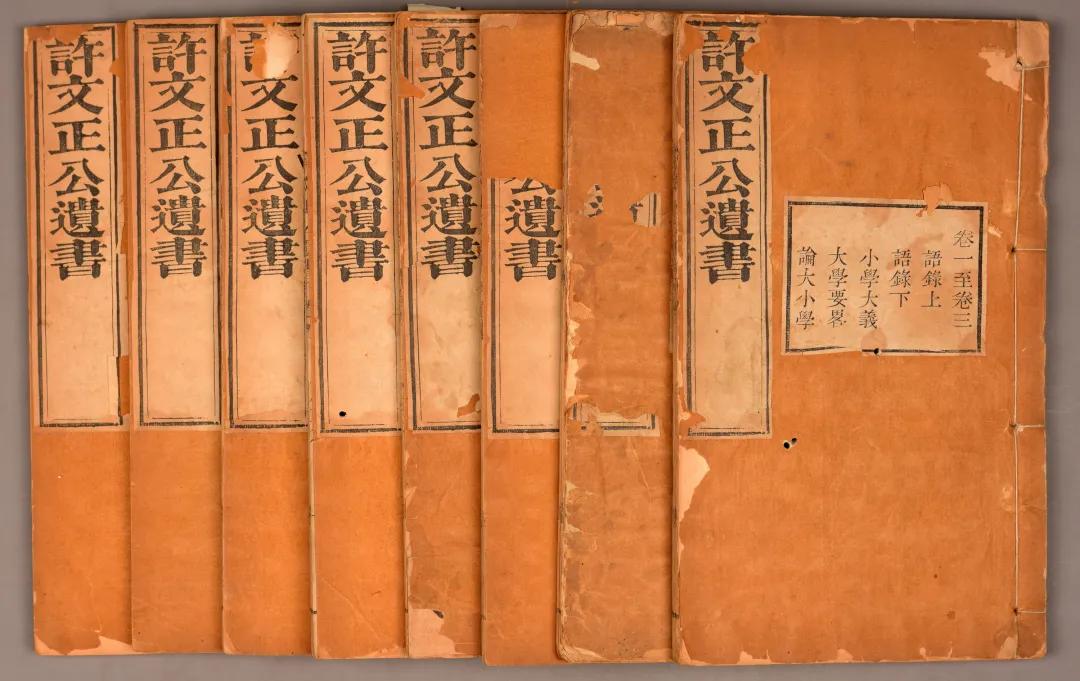 卷一至卷三
語錄上
語錄下
小學大義
大學要畧
論大小學
許文正公遺書
公遺書
許文正公遺書
許文正公遺書
文正公遺書
許文正公遺書
許文正公遺書